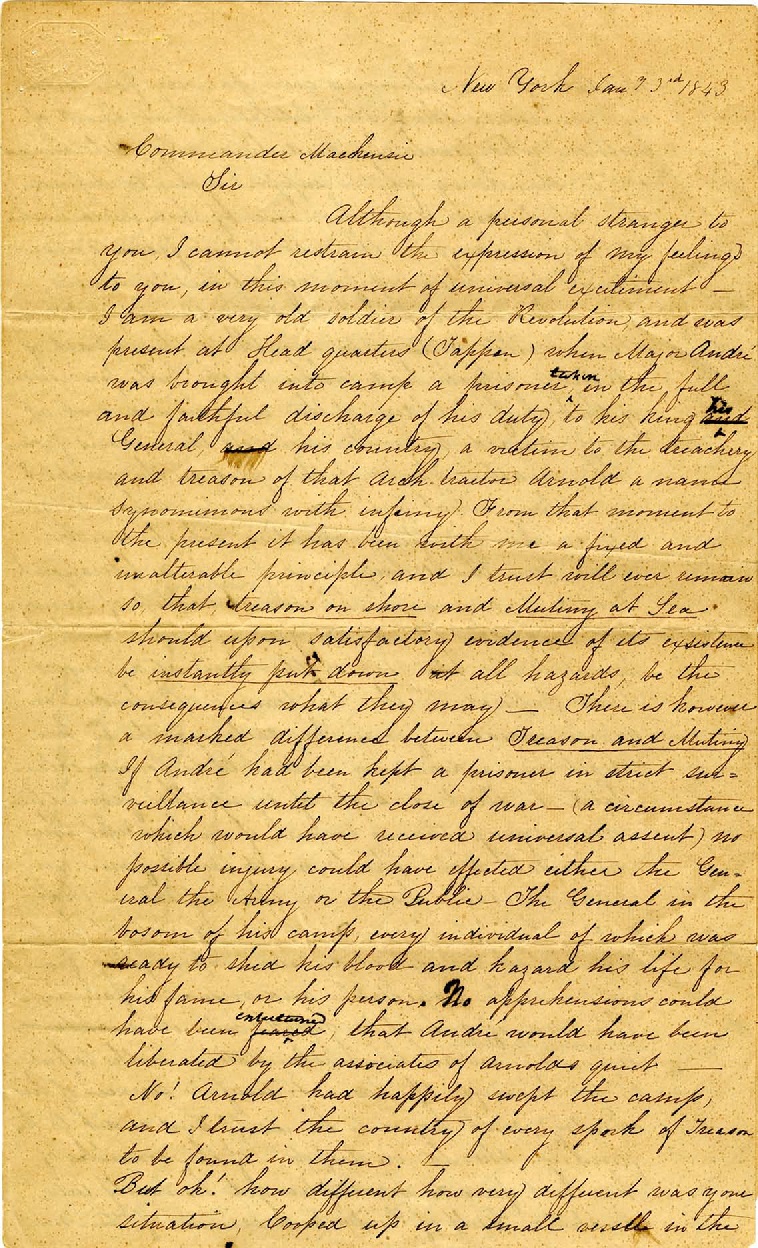 New York Jan 23rd 1843
Commander Mackensie
Sir
Although a personal stranger to
you, I cannot restrain the expression of my feelings
to you, in this moment of universal excitiment —
I am a very old soldier of the Revolution, and was
present at Head quarters (Tappen) when Major André
was brought into camp a prisoner, taken in the full
and faithful discharge of his duty, to his king and his
General, and his country, a victim to the treachery
and treason of that Arch traitor Arnold a name
synonimous with infamy From that moment to
the present it has been with me a fixed and
unalterable principle, and I trust will ever remain
so, that, treason on shore and Mutiny at Sea
should upon satisfactory evidence of its exsistence
be instantly put down at all hazards, be the
consequences what they may — There is however
a marked difference between Treason and Mutiny
If André had been kept a prisoner in strict sur=
veillance until the close of war — (a circumstance
which would have received universal assent) no
possible injury could have effected either the Gen-
eral the Army or the Public — The General in the
bosom of his camp, every individual of which was
ready to shed his blood and hazard his life for
his fame, or his person. No apprehensions could
have been feared entertained, that André would have been
liberated by the associates of Arnolds guiet —
No! Arnold had happily swept the camp,
and I trust the country of every spark of Treason
to be found in them. —
But oh! how different how very different was your
situation, Cooped up in a small vessel in the